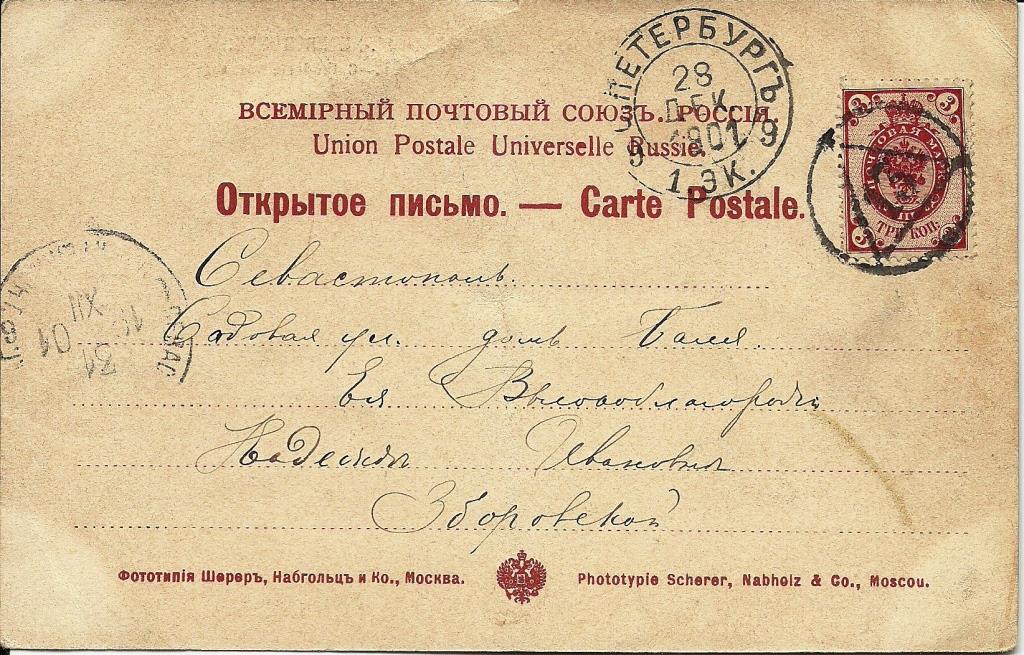 С.ПЕТЕРБУРГЪ
28
ДЕК.
1901
9 9
1.ЭК.
ВСЕМІРНЫЙ ПОЧТОВЫЙ СОЮЗЪ. РОССІЯ.
Union Postale Universelle Russie.
Открытое письмо. — Carte Postale.
3 3
ПОЧТОВАЯ МАРКА
ТРИ КОП.
3 3
Севастополь.
Садовая ул. домъ Баля.
Ея Высокоблагородію
Надежды Ивановны
Зборовской
31
XII
01
Фототипія Шереръ, Набгольцъ и Ко., Москва.
Phototypie Scherer, Nabholz & Co., Moscou.